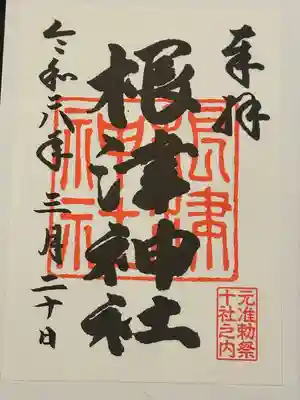 奉拝
根津神社
根津神社
元准勅祭
十社之内
令和六年三月二十日